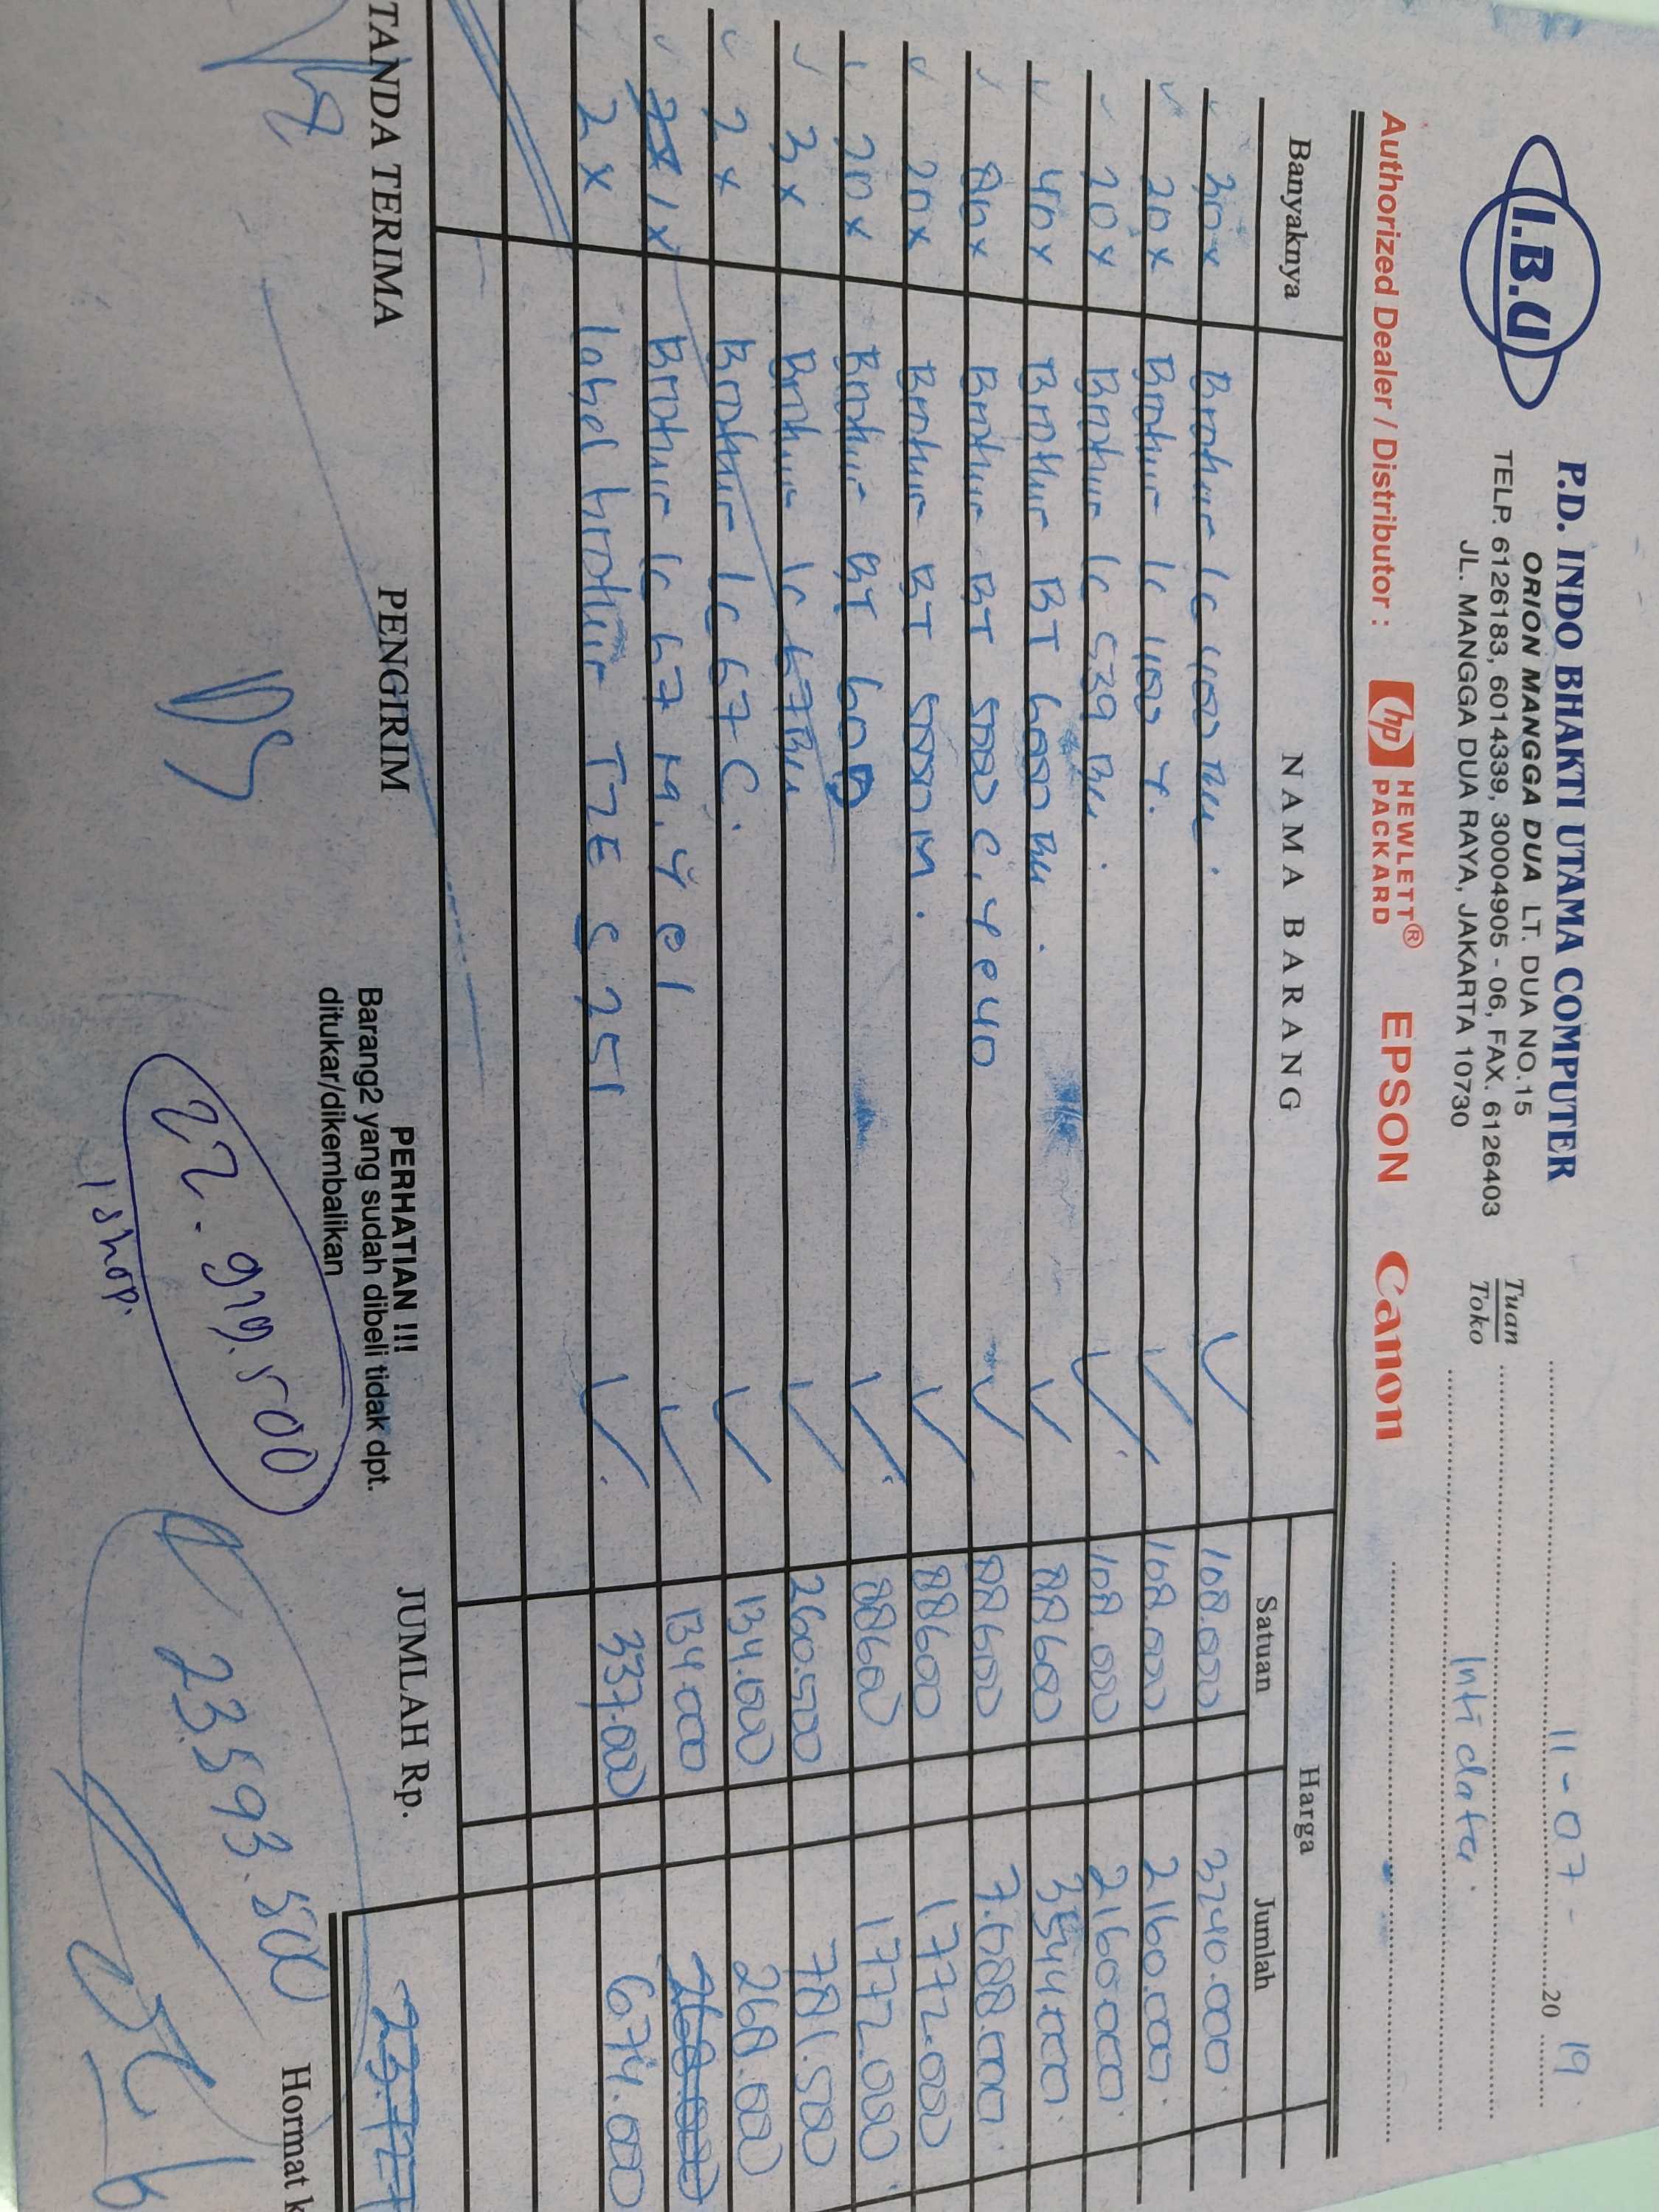 I.B.U
P.D. INDO BHAKTI UTAMA COMPUTER
ORION MANGGA DUA LT. DUA NO.15
TELP. 6126183, 6014339, 30004905 - 06, FAX. 6126403
JL. MANGGA DUA RAYA, JAKARTA 10730
11-07- 20 19
Tuan
Toko
Inti data.
Authorized Dealer / Distributor : hp HEWLETT® PACKARD EPSON Canon
Banyaknya NAMA BARANG Harga
Satuan Jumlah
30x Brother lc 400 Bu. 108.000 3240.000
20x Brother lc 400 Y. 108.000 2160.000
20x Brother lc 539 Bu. 108.000 2160.000
40x Brother BT 6000 Bu. 88600 3544.000
80x Brother BT 5000 C, Y @ 40 88600 7.088.000
20x Brother BT 5000 M. 88600 1772.000
20x Brother BT 88600 1772.000
3x Brother lc 67 Bu 260.500 781.500
2x Brother lc 67 C. 134.000 268.000
1x Brother lc 67 M, Y @ 1 134.000 268.000
2x label brother TZE S 251 337.000 674.000
TANDA TERIMA PENGIRIM
PERHATIAN !!!
Barang2 yang sudah dibeli tidak dpt.
ditukar/dikembalikan
JUMLAH Rp. 23.727
22.919.500
1 shop.
23.593.500
Hormat k